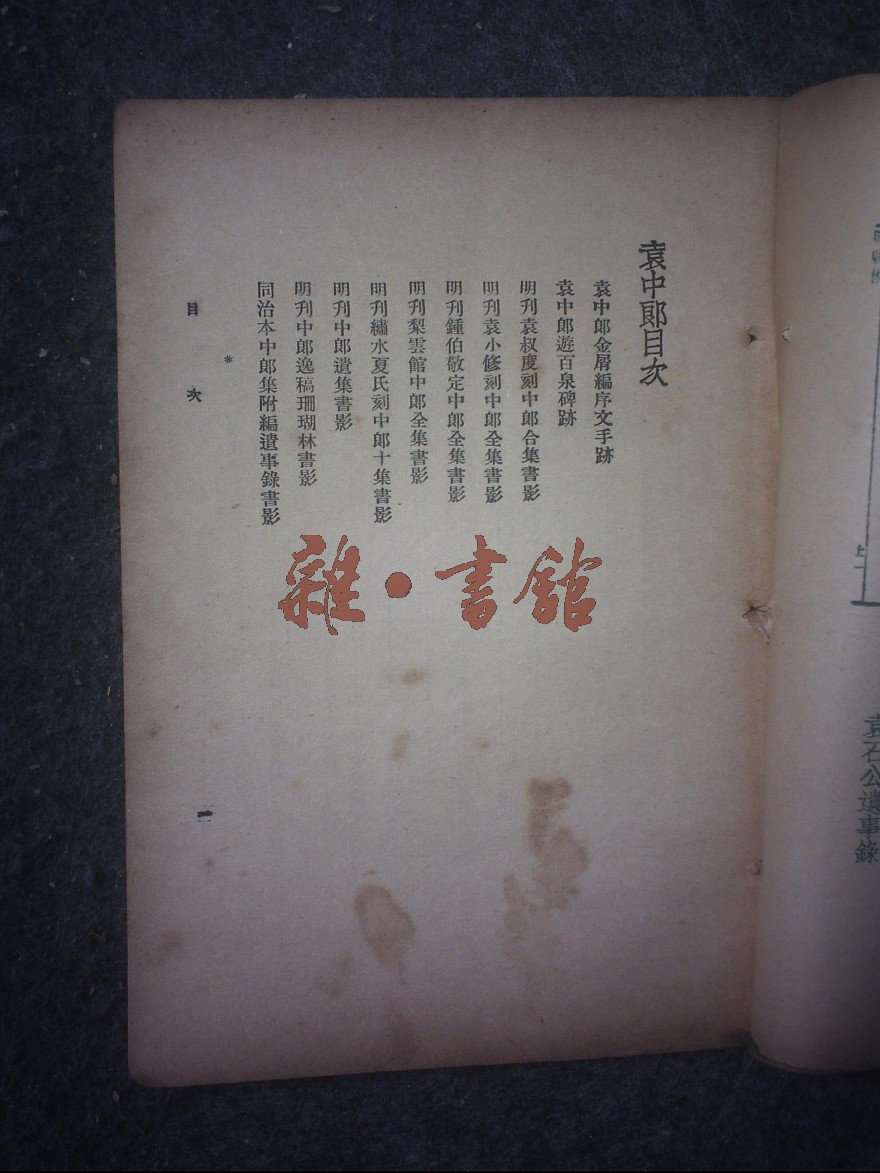 袁中郎目次
袁中郎金屑編序文手跡
袁中郎遊百泉碑跡
明刊袁叔度刻中郎合集書影
明刊袁小修刻中郎全集書影
明刊鍾伯敬定中郎全集書影
明刊梨雲館中郎全集書影
明刊繡水夏氏刻中郎十集書影
明刊中郎遺集書影
明刊中郎逸稿珊瑚林書影
同治本中郎集附編遺事錄書影
*
目次
一
雜•書館
上一
袁石公遺事錄